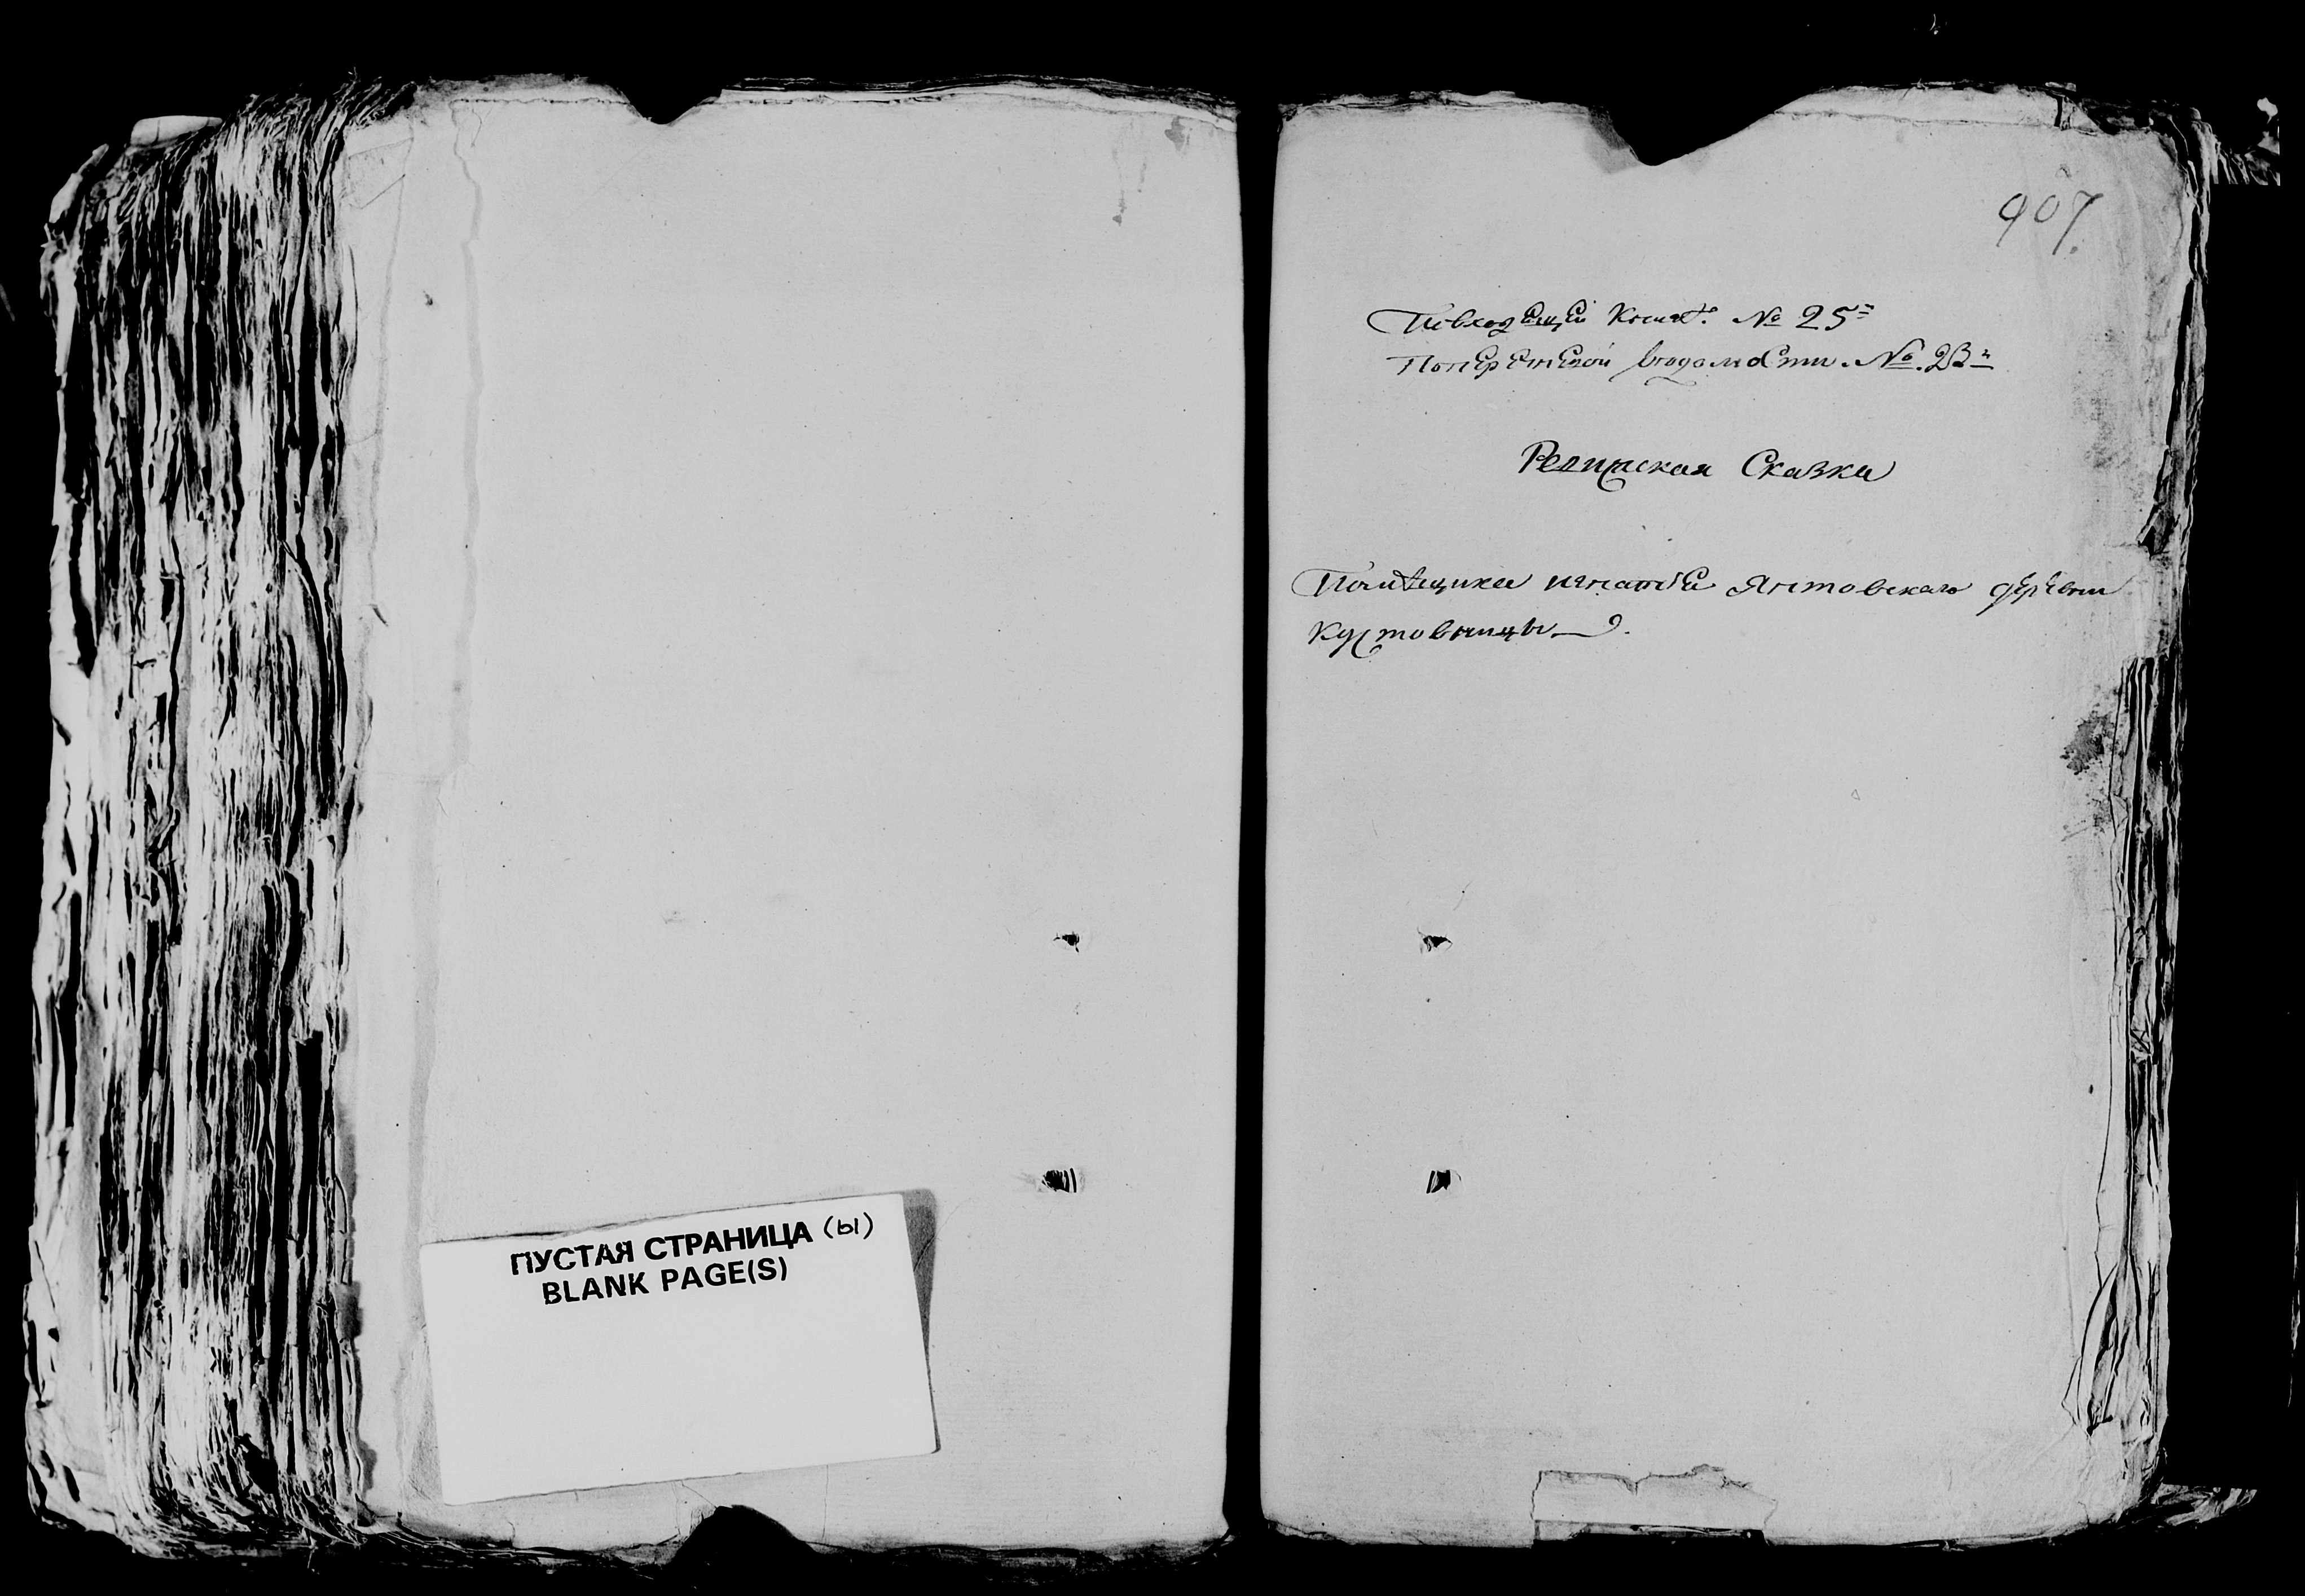 ПУСТАЯ СТРАНИЦА (ы)
BLANK PAGE(S)
907.
По входящей Книге № 25=
По перечневой ведомости. № 23=
Ревижская Сказка
Помѣщика игнатія Янтовскаго деревни
Кустовницы